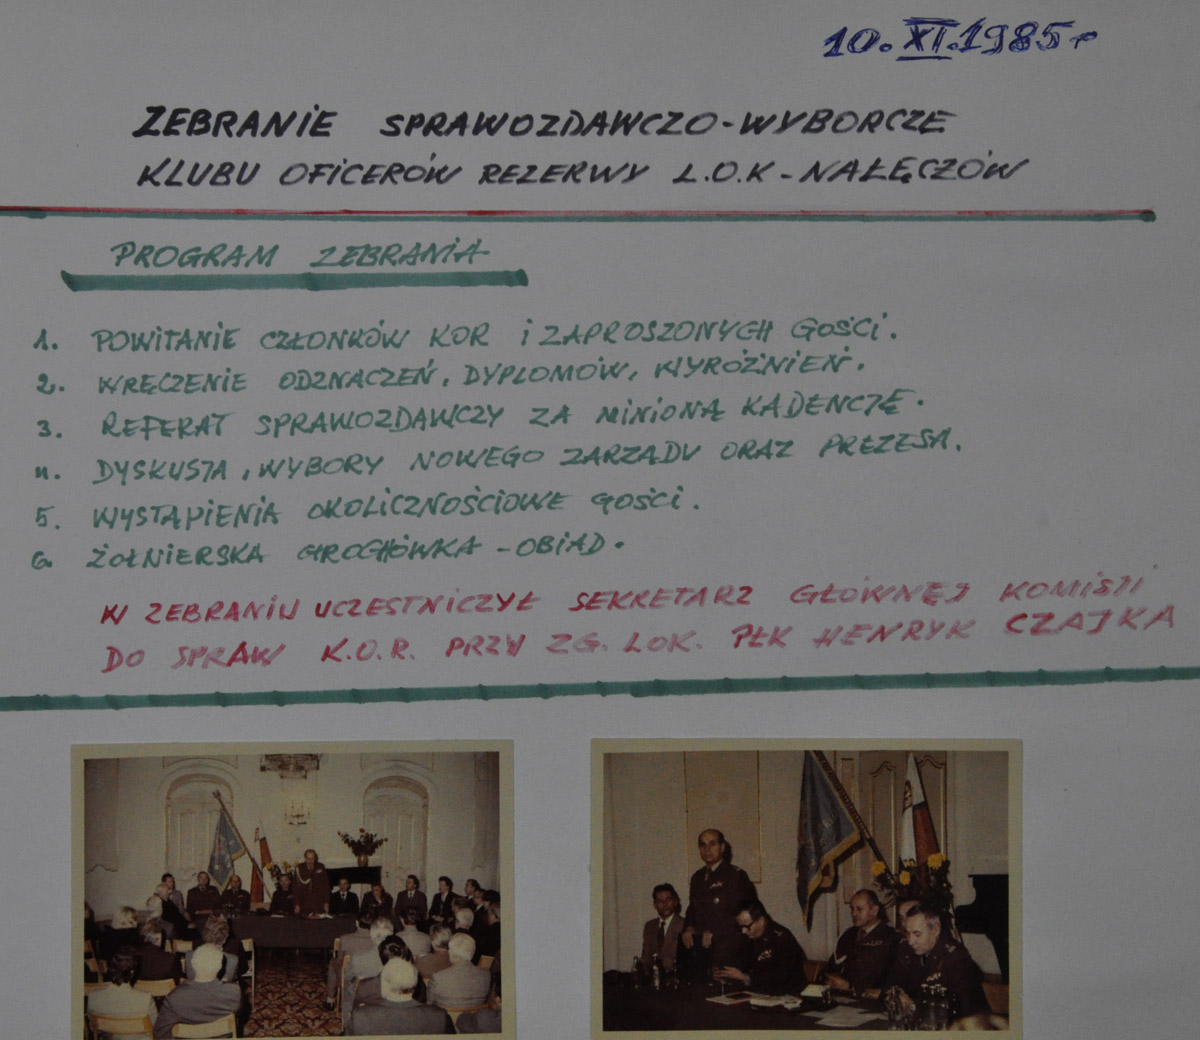 10.XI.1985r
ZEBRANIE SPRAWOZDAWCZO-WYBORCZE
KLUBU OFICERÓW REZERWY L.O.K-NAŁĘCZÓW
PROGRAM ZEBRANIA
1. POWITANIE CZŁONKÓW KOR i ZAPROSZONYCH GOŚCI.
2. WRĘCZENIE ODZNACZEŃ, DYPLOMÓW, WYRÓŻNIEŃ.
3. REFERAT SPRAWOZDAWCZY ZA MINIONĄ KADENCJĘ.
4. DYSKUSJA, WYBORY NOWEGO ZARZĄDU ORAZ PREZESA.
5. WYSTĄPIENIA OKOLICZNOŚCIOWE GOŚCI.
6. ŻOŁNIERSKA GROCHÓWKA - OBIAD.
W ZEBRANIU UCZESTNICZYŁ SEKRETARZ GŁÓWNEJ KOMISJI
DO SPRAW K.O.R. PRZY ZG. LOK. PŁK HENRYK CZAJKA